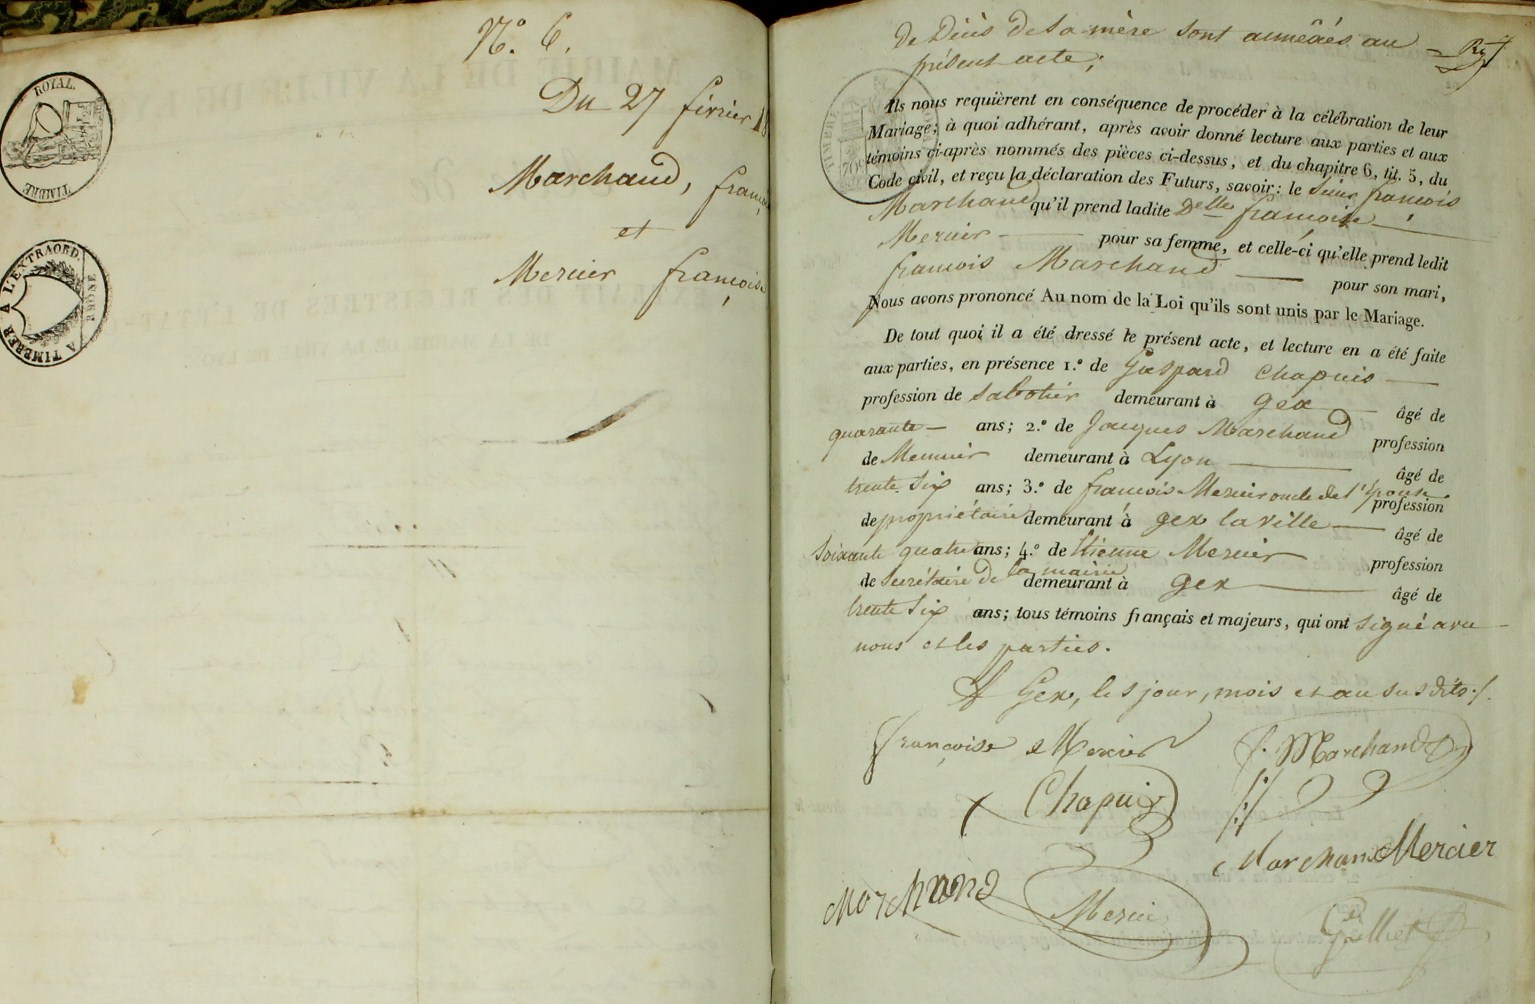 N.º 6.
Du 27 février 18
Marchand, franç
et
Mercier françoise
ROYAL.
TIMBRE
A L'EXTRAORD.
RHONE
A TIMBRER
de Décès de sa mère sont annexées au
présent acte;
TIMBRE
Ils nous requièrent en conséquence de procéder à la célébration de leur
Mariage; à quoi adhérant, après avoir donné lecture aux parties et aux
témoins ci-après nommés des pièces ci-dessus, et du chapitre 6, tit. 5, du
Code civil, et reçu la déclaration des Futurs, savoir: le Sieur françois
Marchand qu'il prend ladite Delle françoise
Mercier pour sa femme, et celle-ci qu'elle prend ledit
françois Marchand pour son mari,
Nous avons prononcé Au nom de la Loi qu'ils sont unis par le Mariage.
De tout quoi il a été dressé le présent acte, et lecture en a été faite
aux parties, en présence 1.º de Gaspard Chapuis
profession de sabotier demeurant à Gex âgé de
quarante ans; 2.º de Jacques Marchand profession
de Meunier demeurant à Lyon âgé de
trente Six ans; 3.º de françois Mercier oncle de l'épouse profession
de propriétaire demeurant à gex la ville âgé de
Soixante quatre ans; 4.º de Etienne Mercier profession
de Secrétaire de la mairie demeurant à gex âgé de
trente Six ans; tous témoins français et majeurs, qui ont signé avec
nous et les parties.
A Gex, les jour, mois et an susdits ./.
françoise Mercier f. Marchand
Chapuis
Marchand Mercier
Marchand Mercier